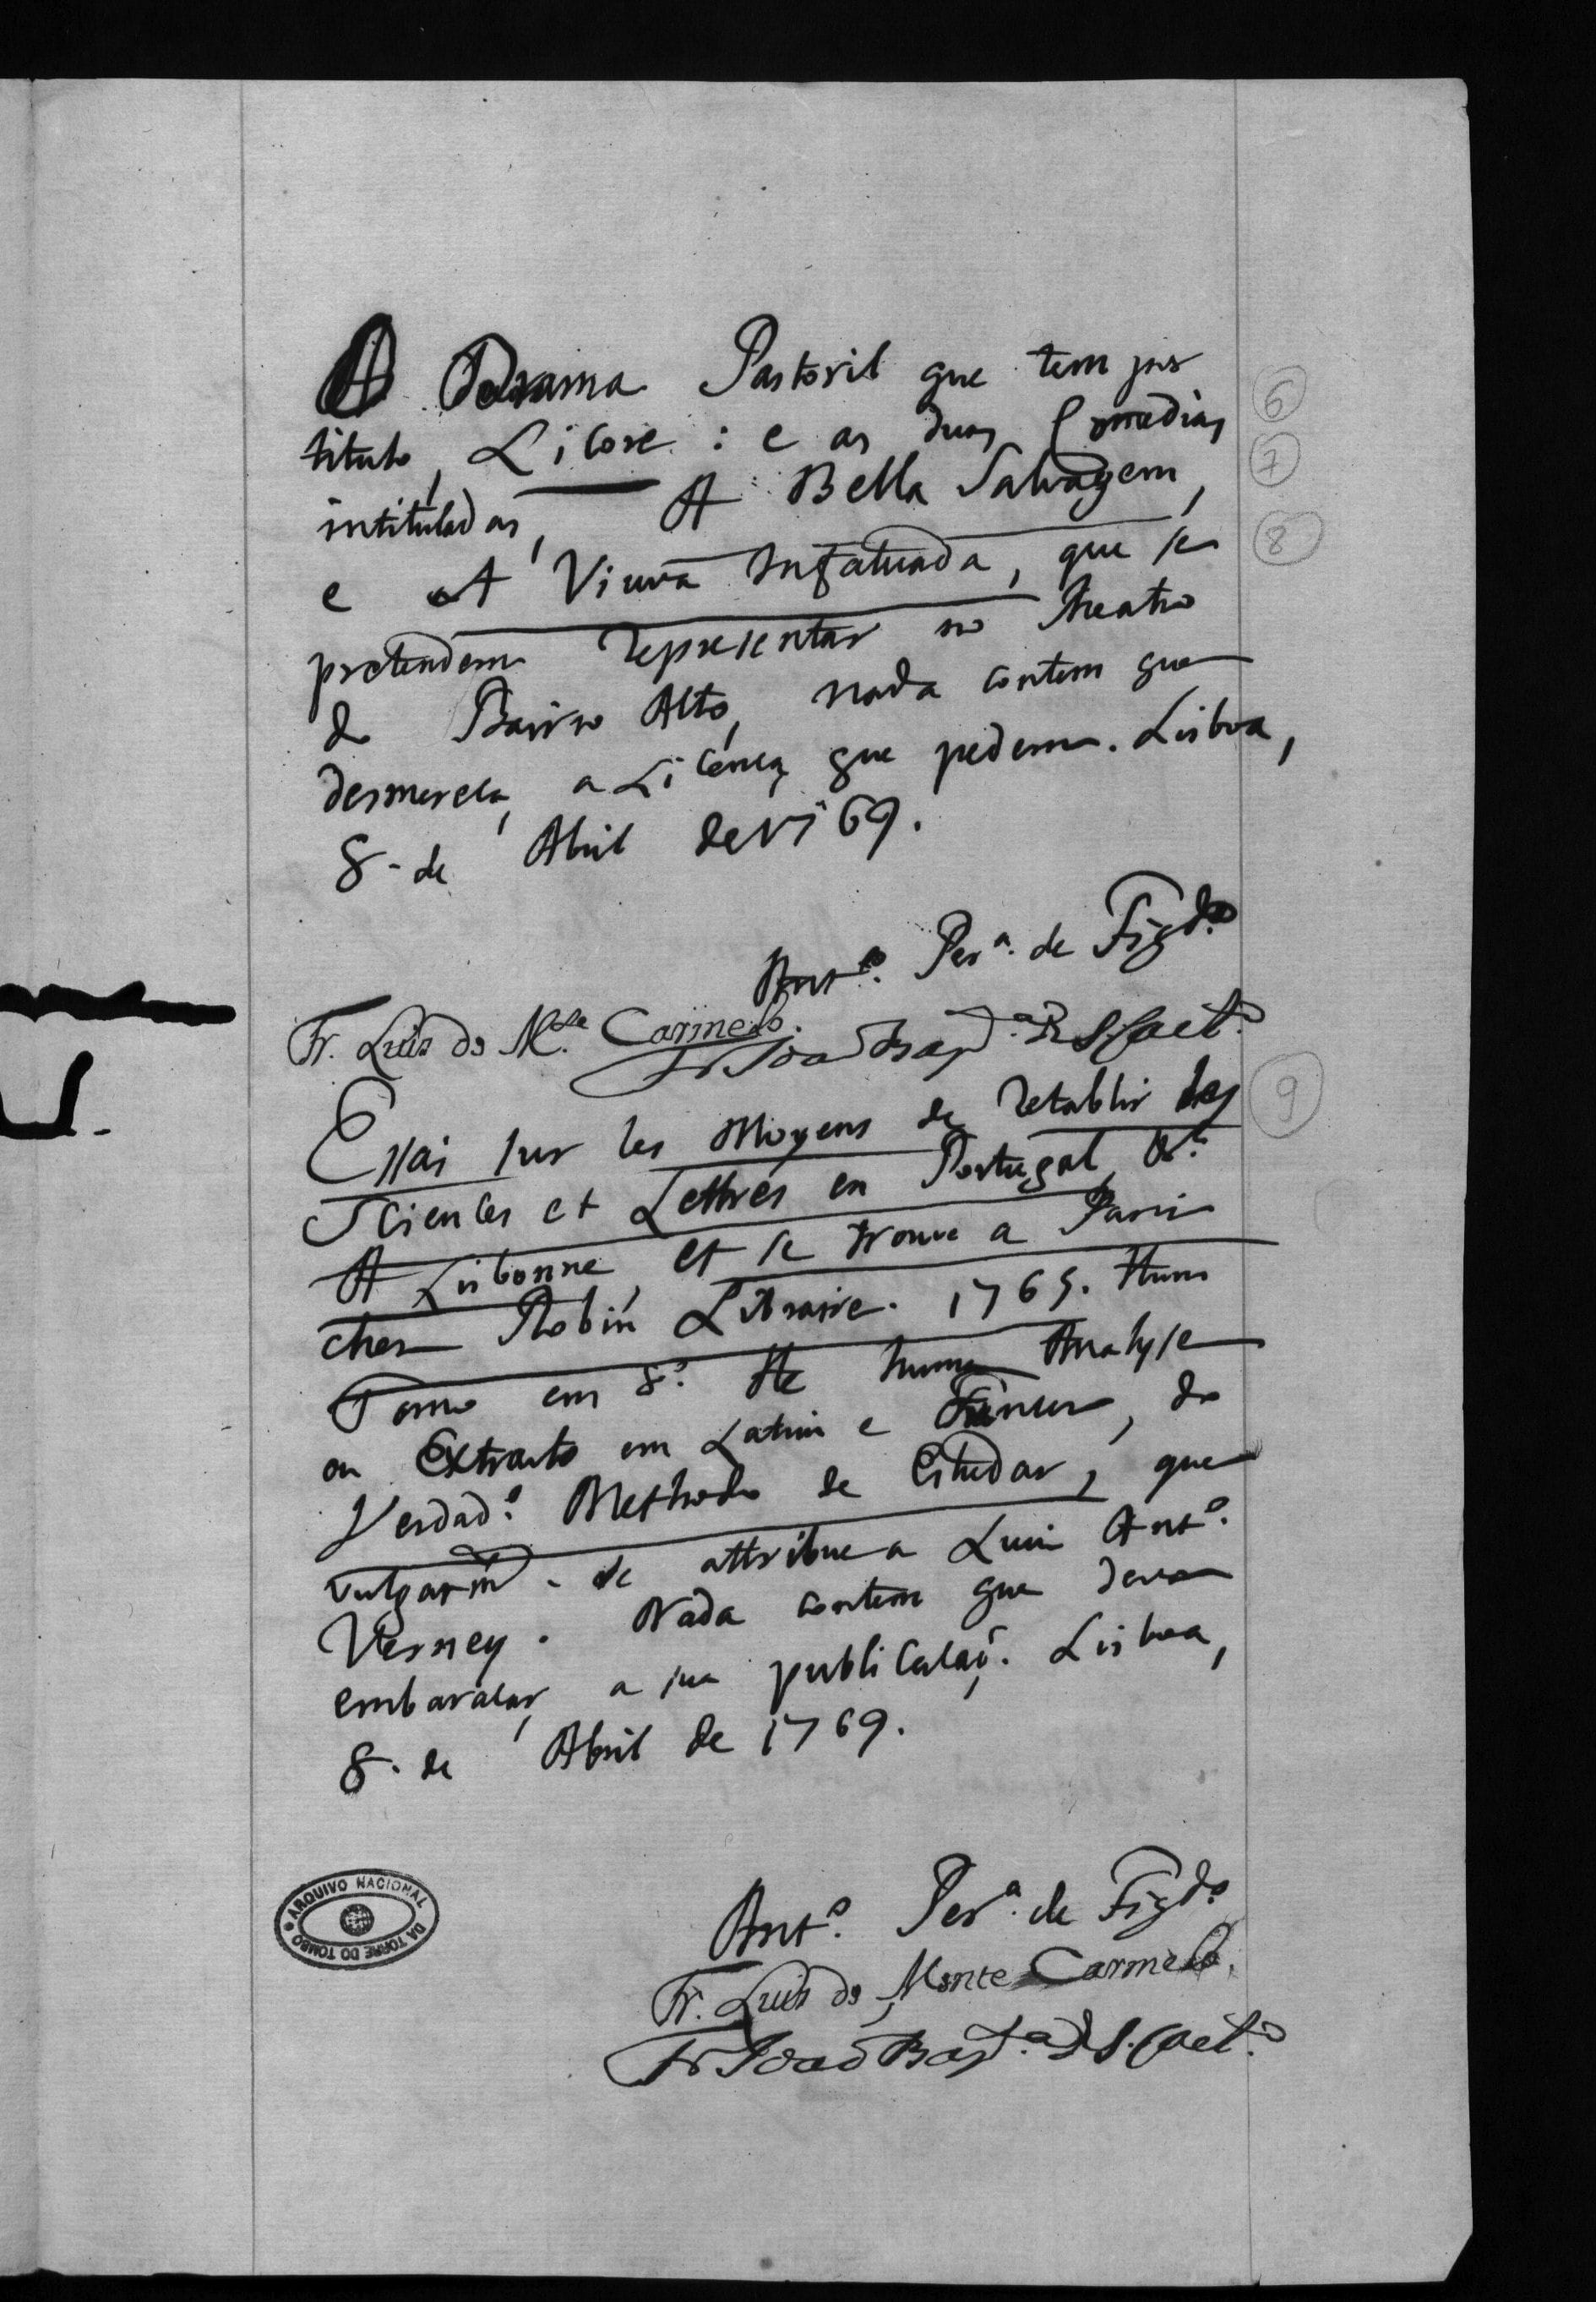 O Drama Pastoril que tem por 6
titulo, Licore: e as duas Comedias 7
intituladas, A Bella Salvagem,
e A Viuva Infatuada, que se 8
pretendem representar no theatro
do Bairro Alto, nada contem que
desmereça a Licença que pedem. Lisboa,
8. de Abril de 1769.
Ant.º Per.ª de Figd.º
Fr. Luis do M.te Carmelo.
Fr João Bap.ta de S. Caet.º
Essai sur les Moyens de retablir les 9
Sciences et Lettres en Portugal, &.
A Lisbonne, et se trouve a Paris
ches Robin Libraire. 1765. Hum
Tomo em 8.º He huma Analyse
ou Extracto em Latim e Frances, do
Verdad.º Methodo de Estudar, que
vulgarm.te se attribue a Luis Ant.º
Verney. Nada contem que deva
embaraçar a sua publicaçaõ. Lisboa,
8. de Abril de 1769.
Ant.º Per.ª de Figd.º
Fr. Luis do Monte Carmelo.
Fr João Bap.ta de S. Caet.º
ARQUIVO NACIONAL DA TORRE DO TOMBO